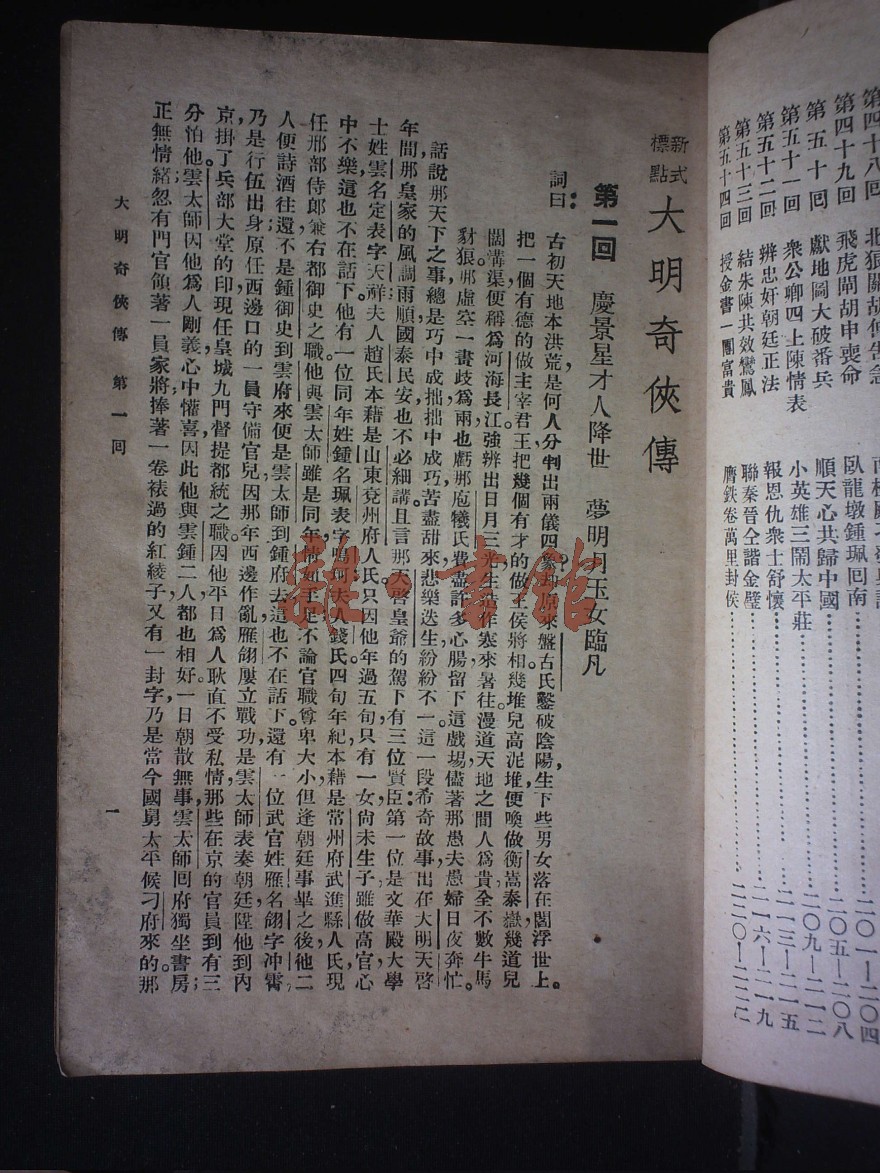 第四十八回 北狼關胡
第四十九回 飛虎閘胡申喪命
第五十回 獻地圖大破番兵
第五十一回 衆公卿四上陳情表
第五十二回 辨忠奸朝廷正法
第五十三回 結朱陳共效鸞鳳
第五十四回 授金書一團富貴
臥龍墩鍾珮回南
順天心共歸中國
小英雄三鬧太平莊
報恩仇衆士舒懷
聯秦晉仝諧金璧
膺鉄卷萬里封侯
二〇一—二〇四
二〇五—二〇八
二〇九—二一二
二一三—二一五
二一六—二一九
二二〇—二二二
新式標點 大明奇俠傳
第一回 慶景星才人降世 夢明月玉女臨凡
詞曰：古初天地本洪荒，是何人分判出兩儀四象？却原來盤古氏鑿破陰陽，生下些男女落在閻浮世上。
把一個有德的做主宰君王，把幾個有才的做王侯將相。幾堆兒高泥堆，便喚做衡嵩泰嶽，幾道兒
闊溝渠，便稱爲河海長江。強辨出日月三光，生造作寒來暑往。漫道天地之間人爲貴，全不數牛馬
豺狼。那虛空一畫歧爲兩也，虧那庖犧氏費盡許多心腸，留下這戲場，儘著那愚夫愚婦日夜奔忙。
話說那天下之事，總是巧中成拙，拙中成巧，苦盡甜來，悲樂迭生，紛紛不一。這一段希奇故事，出在大明天啓
年間，那皇家的風調雨順，國泰民安，也不必細講，且言那天啓皇爺的駕下有三位賢臣：第一位是文華殿大學
士，姓雲名定，表字天祥，夫人趙氏，本藉是山東兗州府人氏，只因他年過五旬，只有一女，尚未生子，雖做高官，心
中不樂，這也不在話下。他有一位同年，姓鍾名珮，表字鳴珂，夫人錢氏，四旬年紀，本藉是常州府武進縣人氏，現
任邢部侍郎，兼右都御史之職，他與雲太師雖是同年，情如手足，不論官職尊卑大小，但逢朝廷事畢之後，他二
人便詩酒往還，不是鍾御史到雲府來，便是雲太師到鍾府去，這也不在話下。還有一位武官，姓雁名翎字沖霄；
乃是行伍出身，原任西邊口的一員守備官兒，因那年西邊作亂，雁翎屢立戰功，是雲太師表奏朝廷，陞他到內
京，掛了兵部大堂的印，現任皇城九門督提都統之職，因他平日爲人耿直，不受私情，那些在京的官員，到有三
分怕他，雲太師因他爲人剛義，心中懽喜，因此他與雲鍾二人都也相好。一日朝散無事，雲太師囘府獨坐書房；
正無情緒，忽有門官領著一員家將，捧著一卷裱過的紅綾子，又有一封字，乃是當今國舅太平候刁府來的。那
大明奇俠傳 第一回
一
書館